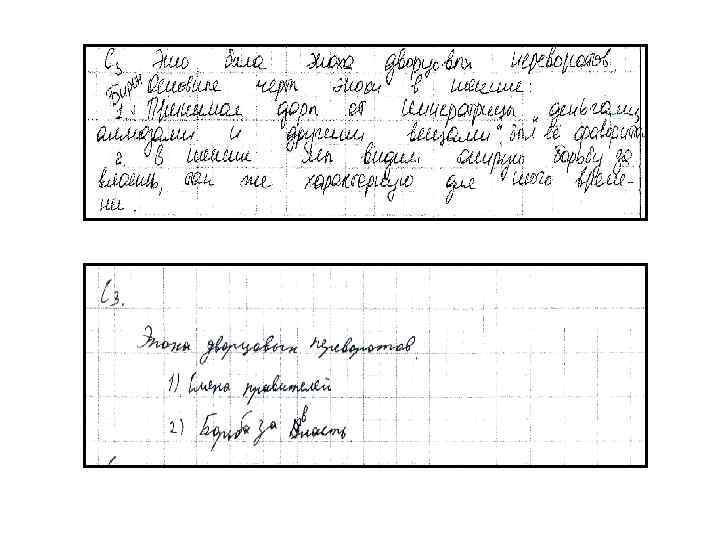 С3 Это была эпоха дворцовых переворотов.
Бирон Основные черты эпохи в
1. Принимал дары от императрицы "деньгами,
алмазами и другими вещами", был её фаворитом
2. В мы видим борьбу за
власть, так же характерную для того време-
ни.
С3.
Эпоха дворцовых переворотов.
1) Смена правителей
2) Борьба за власть.